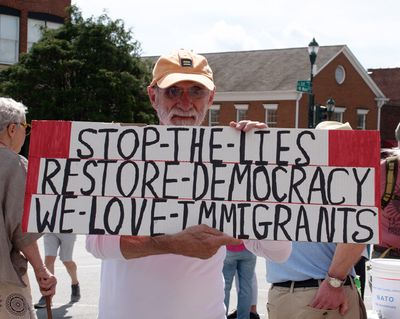 STOP-THE-LIES
RESTORE-DEMOCRACY
WE-LOVE-IMMIGRANTS
NATO